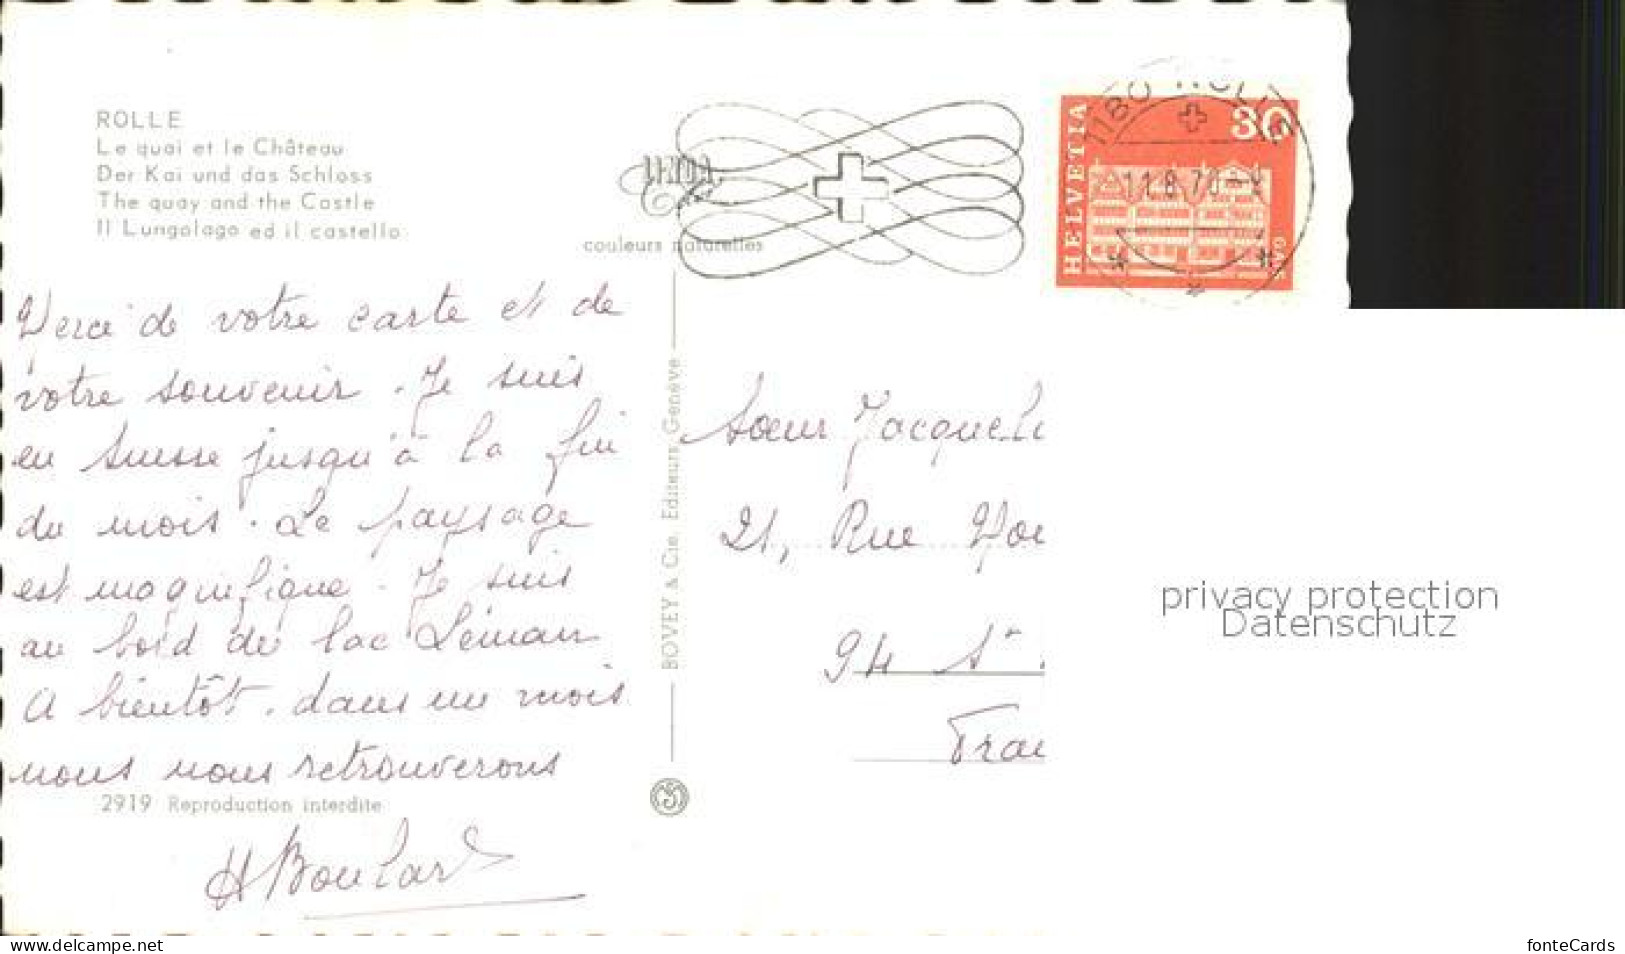 ROLLE
Le quai et le Château
Der Kai und das Schloss
The quay and the Castle
Il Lungolago ed il castello
couleurs naturelles
1180 ROLLE
11.8.70-9
HELVETIA
30
Merci de votre carte et de
votre souvenir. Je suis
en Suisse jusqu'à la fin
du mois. Le paysage
est magnifique. Je suis
au bord du lac Léman
A bientôt. dans un mois
nous nous retrouverons
H Boulard
2919 Reproduction interdite
BOVEY & Cie, Editeurs, Genève
Soeur Jacqueli
21, Rue
94 St
Fran
privacy protection
Datenschutz
www.delcampe.net
fonteCards